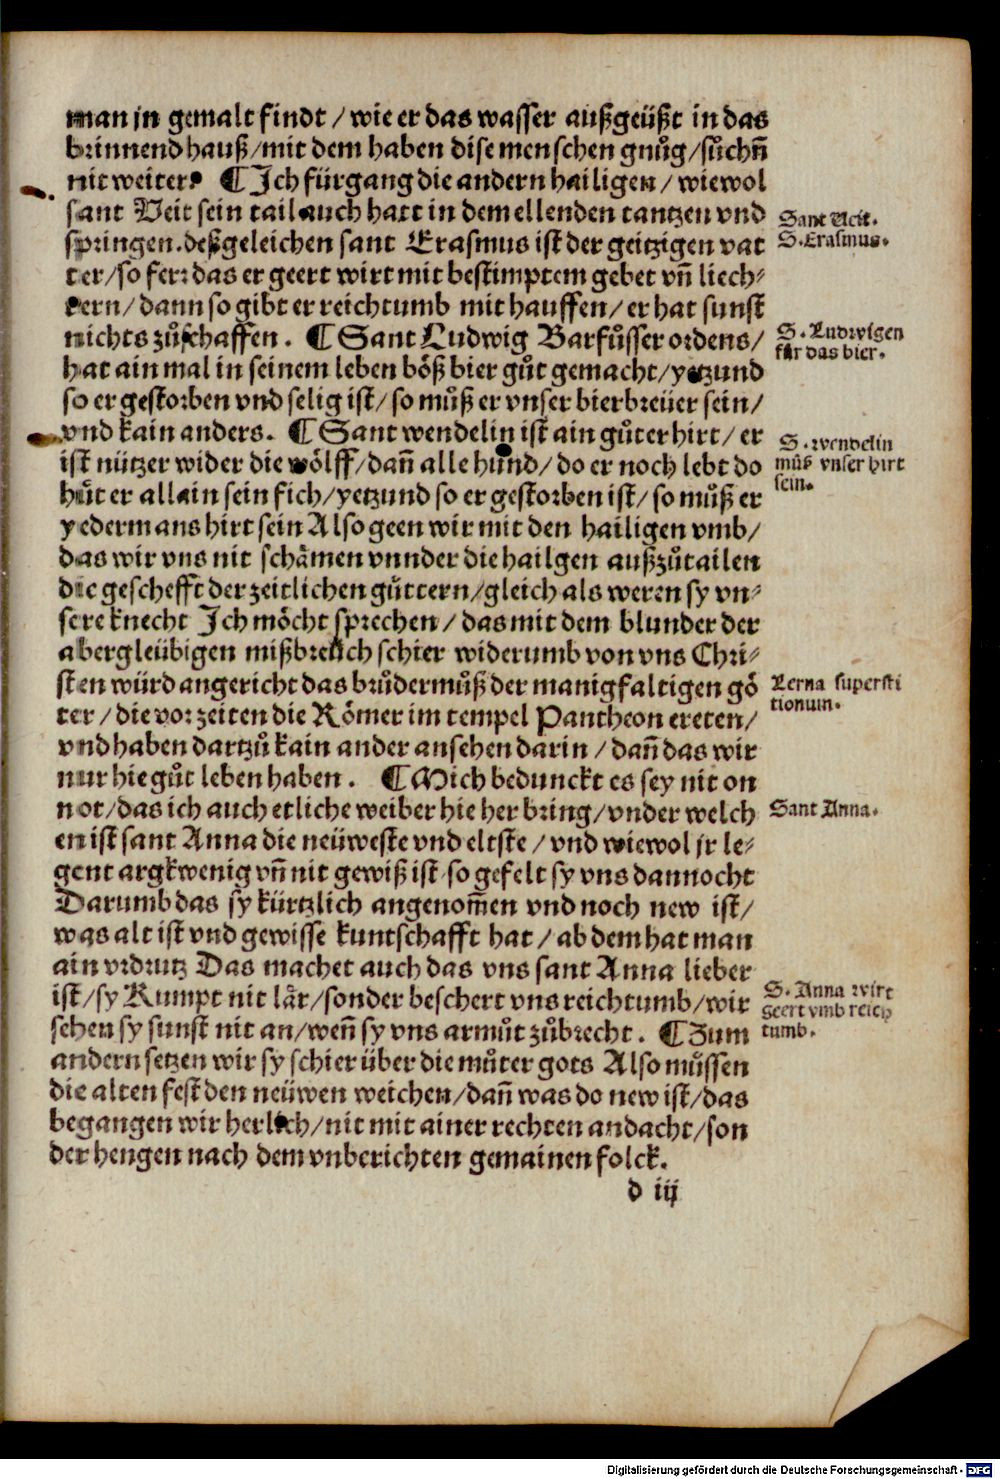 man jn gemalt findt / wie er das wasser außgeüßt in das
brinnend hauß/mit dem haben dise menschen gnůg/sůchñ
nit weiter. ¶ Ich fürgang die andern hailigen / wiewol
sant Veit sein tail auch hatt in dem ellenden tantzen vnd
springen. deßgeleichen sant Erasmus ist der geitzigen vat
ter/so ferr das er geert wirt mit bestimptem gebet vñ liech-
tern/ dann so gibt er reichtumb mit hauffen/ er hat sunst
nichts zůschaffen. ¶ Sant Ludwig Barfůsser ordens/
hat ain mal in seinem leben böß bier gůt gemacht/yetzund
so er gestorben vnd selig ist/ so můß er vnser bierbreüer sein/
vnd kain anders. ¶ Sant wendelin ist ain gůter hirt/ er
ist nützer wider die wölff/dañ alle hund/ do er noch lebt do
hůt er allain sein fich/yetzund so er gestorben ist/ so můß er
yedermans hirt sein Also geen wir mit den hailigen vmb/
das wir vns nit schämen vnnder die hailgen außzůtailen
die geschefft der zeitlichen gůttern/gleich als weren sy vn-
sere knecht Ich möcht sprechen/ das mit dem blunder der
abergleübigen mißbreüch schier widerumb von vns Chri-
sten würd angericht das brůdermůß der manigfaltigen gö
ter / die vor zeiten die Römer im tempel Pantheon ereten/
vnd haben dartzů kain ander ansehen darin / dañ das wir
nur hie gůt leben haben. ¶ Mich bedunckt es sey nit on
not/das ich auch etliche weiber hie her bring/vnder welch
en ist sant Anna die neüweste vnd eltste / vnd wiewol jr le-
gent argkwenig vñ nit gewiß ist so gefelt sy vns dannocht
Darumb das sy kürtzlich angenom̃en vnd noch new ist/
was alt ist vnd gewisse kuntschafft hat / ab dem hat man
ain vrdrutz Das machet auch das vns sant Anna lieber
ist/sy Kumpt nit lär/sonder beschert vns reichtumb/wir
sehen sy sunst nit an/weñ sy vns armůt zůbrecht. ¶ Zum
andern setzen wir sy schier über die můter gots Also můssen
die alten fest den neüwen weichen/dañ was do new ist/das
begangen wir herlich/nit mit ainer rechten andacht/son
der hengen nach dem vnberichten gemainen folck.
d iij
Sant Veit.
S. Erasmus.
S. Ludwigen
für das bier.
S. wendelin
můß vnser hirt
sein.
Lerna supersti
tionum.
Sant Anna.
S. Anna wirt
geert vmb reich
tumb.
Digitalisierung gefördert durch die Deutsche Forschungsgemeinschaft - DFG